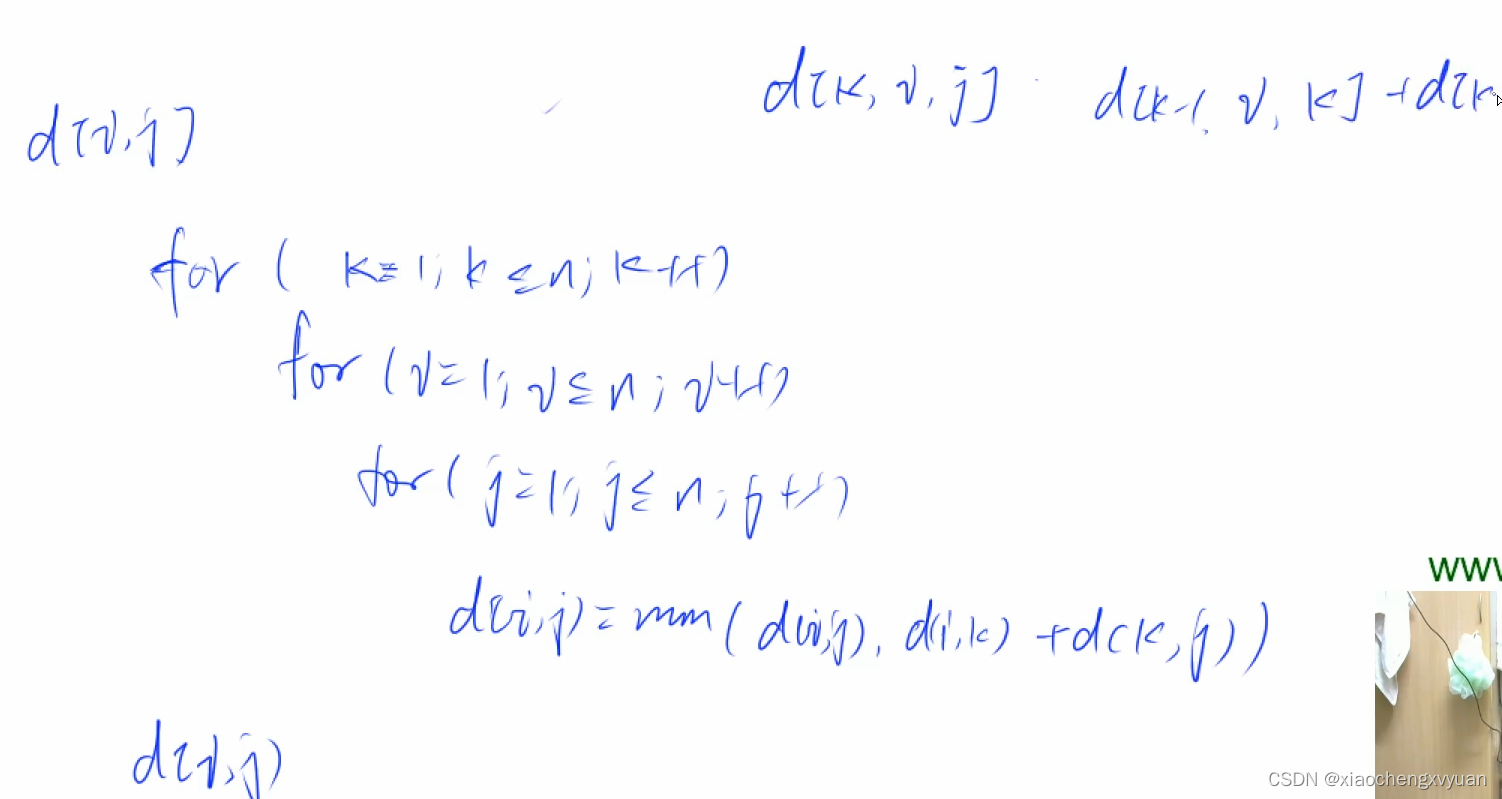 d[k, i, j] d[k-1, i, k] + d[k
d[i, j]
for ( k=1; k≤n; k++)
for (i=1; i≤n; i++)
for( j=1; j≤n; j++)
d(i,j)=min(d(i,j), d(i,k) +d(k,j))
www
d[i,j)
CSDN @xiaochengxvyuan